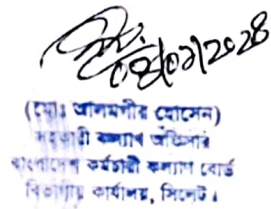 ০৪/০২/২০২৪
(মোঃ আলমগীর হোসেন)
সহকারী কল্যাণ অফিসার
বাংলাদেশ কর্মচারী কল্যাণ বোর্ড
বিভাগীয় কার্যালয়, সিলেট।